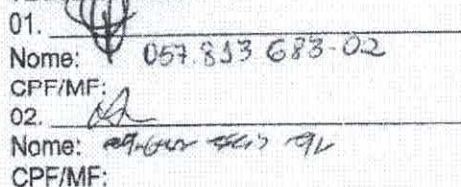 01.
Nome: 057.813 683-02
CPF/MF:
02.
Nome:
CPF/MF: